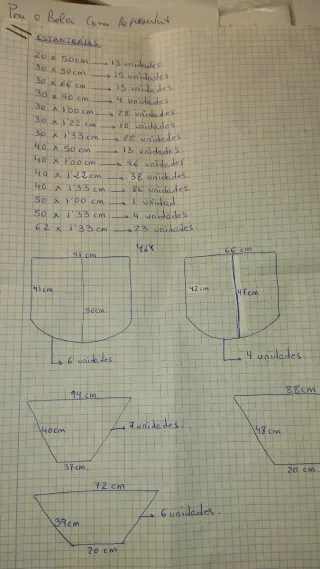 o Bolsa Como Representar
ESTANTERIAS
20 x 50cm → 13 unidades
30 x 50cm → 15 unidades.
30 x 66cm → 15 unidades.
30 x 90cm → 4 unidades
30 x 1'00cm → 28 unidades
30 x 1'22cm → 10 unidades.
30 x 1'33cm → 22 unidades.
40 x 50cm → 13 unidades
40 x 1'00cm → 96 unidades
40 x 1'22cm → 38 unidades.
40 x 1'33cm → 86 unidades.
50 x 1'00cm → 1 unidad
50 x 1'33cm → 4 unidades.
62 x 1'33cm → 23 unidades
41 cm
41cm
50cm.
6 unidades
66 cm
42cm
47cm
4 unidades.
94 cm
40cm
37cm.
7 unidades.
88cm
48cm
20 cm.
72 cm
39cm
20 cm
6 unidades.